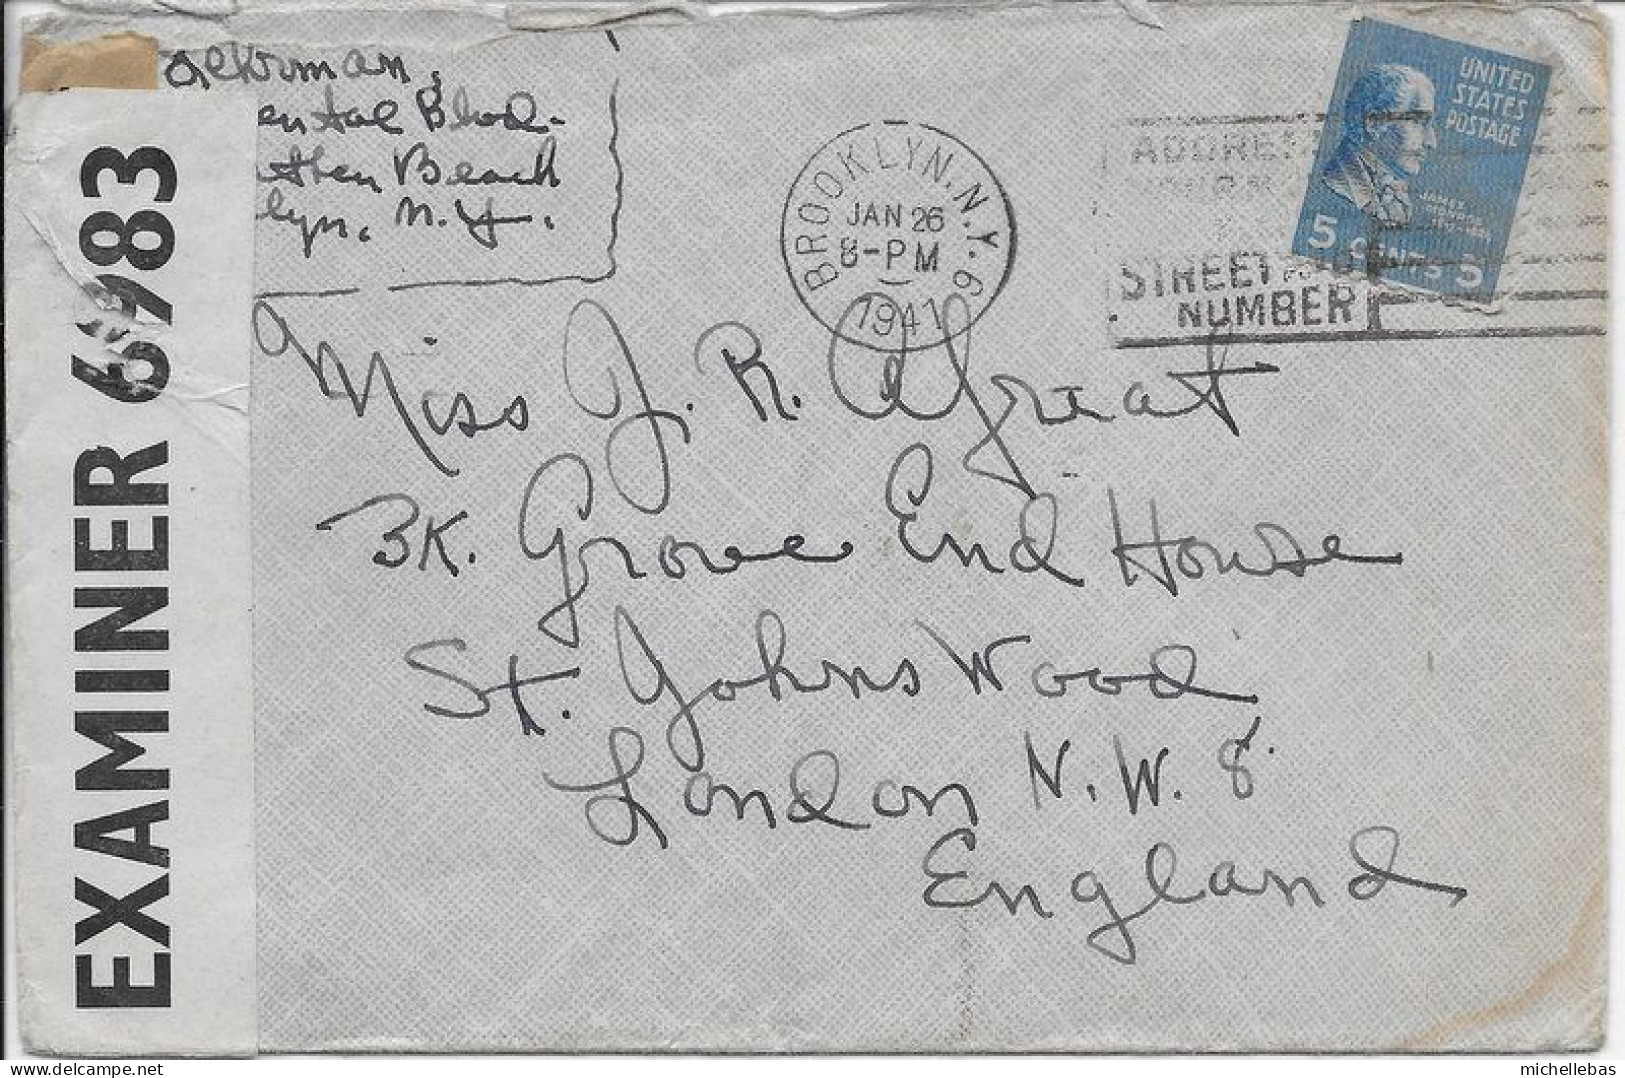 Ackerman,
ental Blvd.
attan Beach
klyn, N.Y.
EXAMINER 6983
BROOKLYN, N.Y. 9
JAN 26
8-PM
1941
ADDRE
STREET AND
NUMBER
UNITED
STATES
POSTAGE
JAMES
MONROE
5 CENTS 5
Miss J. R.
3K. Grove End House
St. Johns Wood
London N.W. 8.
England
michellebas